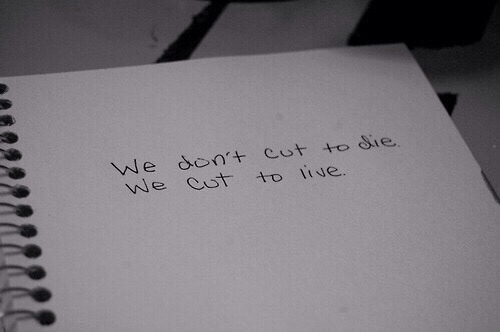 We don't cut to die.
We cut to live.